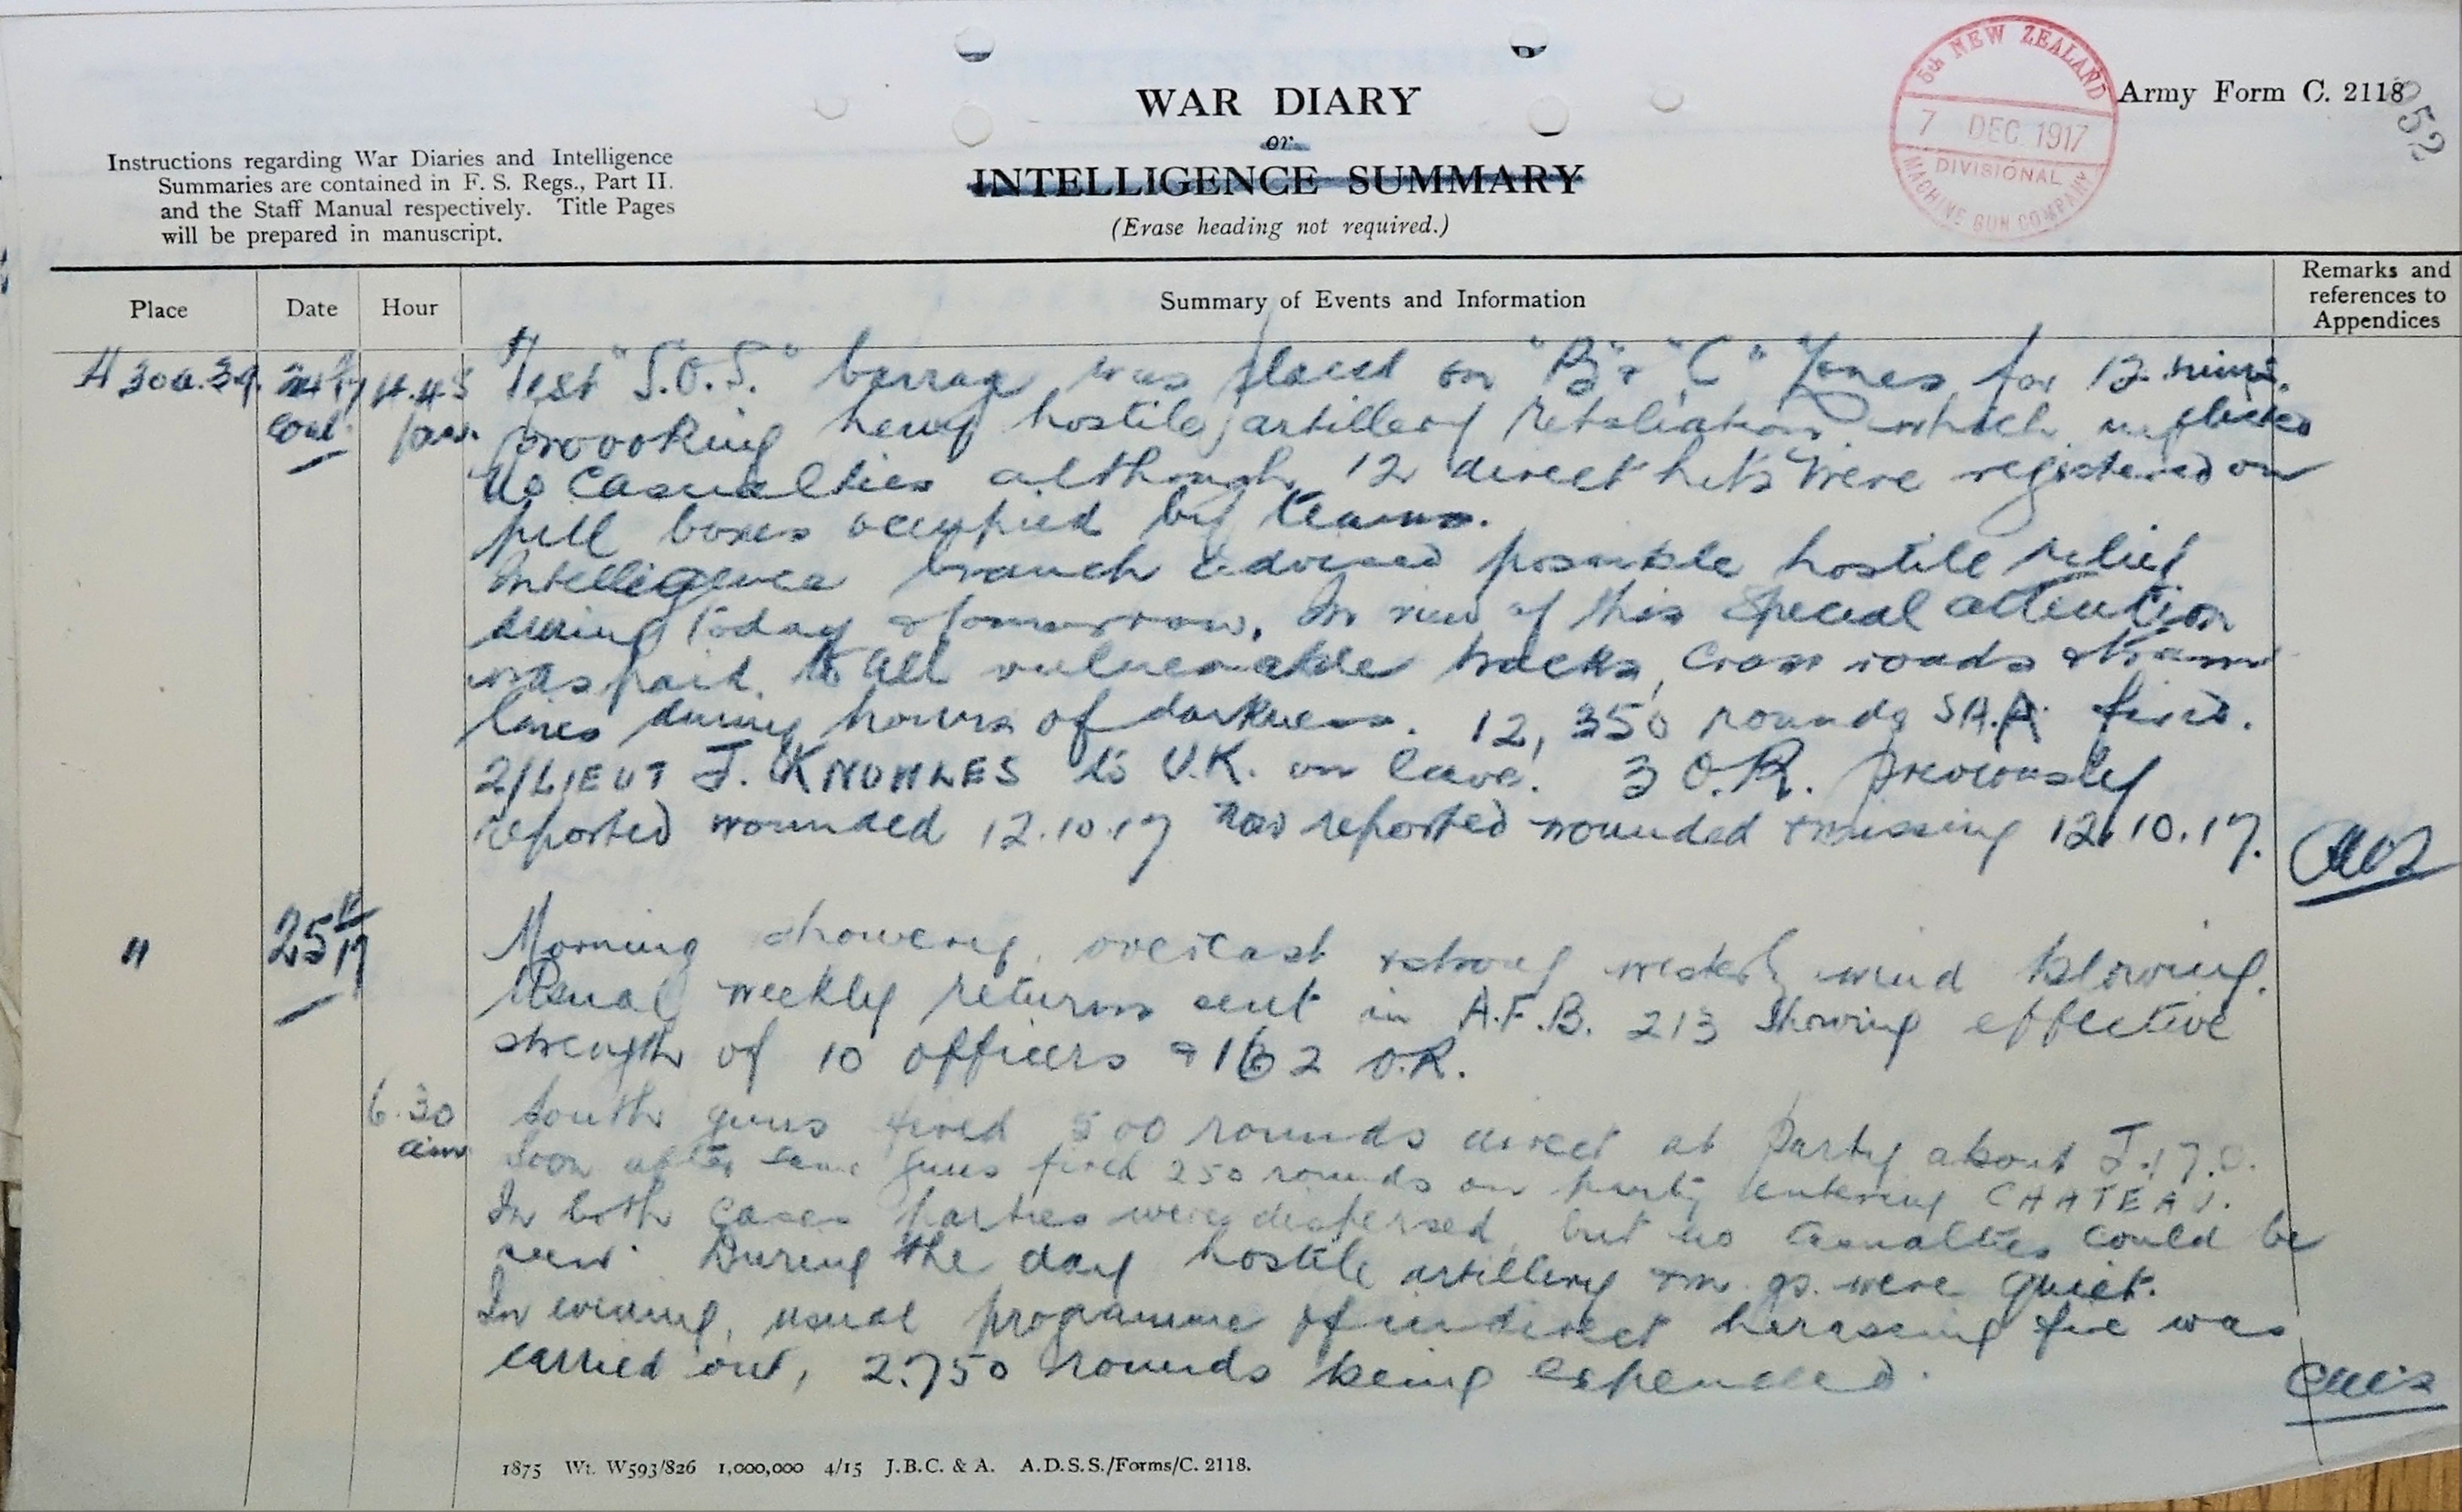 WAR DIARY
or
INTELLIGENCE SUMMARY
(Erase heading not required.)
Army Form C. 2118
052
5th NEW ZEALAND
7 DEC. 1917
DIVISIONAL
MACHINE GUN COMPANY
Instructions regarding War Diaries and Intelligence
Summaries are contained in F. S. Regs., Part II.
and the Staff Manual respectively. Title Pages
will be prepared in manuscript.
Place Date Hour Summary of Events and Information Remarks and
references to
Appendices
H 30a.3.9. 24/17 4.45 Test "S.O.S." barrage was placed on "B" & "C" Zones for 12 mins.
cont. pm. provoking heavy hostile artillery retaliation which inflicted
no casualties although 12 direct hits were registered on
pill boxes occupied by teams.
Intelligence branch advised possible hostile relief
during today & tomorrow. In view of this special attention
was paid to all vulnerable tracks, cross roads & tram
lines during hours of darkness. 12,350 rounds S.A.A. fired.
2/LIEUT J. KNOWLES to U.K. on leave. 3 O.R. previously
reported wounded 12.10.17 now reported wounded & missing 12.10.17.
" 25th/17 Morning showery, overcast & strong westerly wind blowing.
Usual weekly returns sent in A.F.B. 213 showing effective
strength of 10 officers & 162 O.R.
6.30 South guns fired 500 rounds direct at party about J.17.c.
am Soon after same guns fired 250 rounds on party entering CHATEAU.
In both cases parties were dispersed, but no casualties could be
seen. During the day hostile artillery & m.gs. were quiet.
In evening, usual programme of indirect harassing fire was
carried out, 2.750 rounds being expended.
1875 Wt. W593/826 1,000,000 4/15 J.B.C. & A. A.D.S.S./Forms/C. 2118.